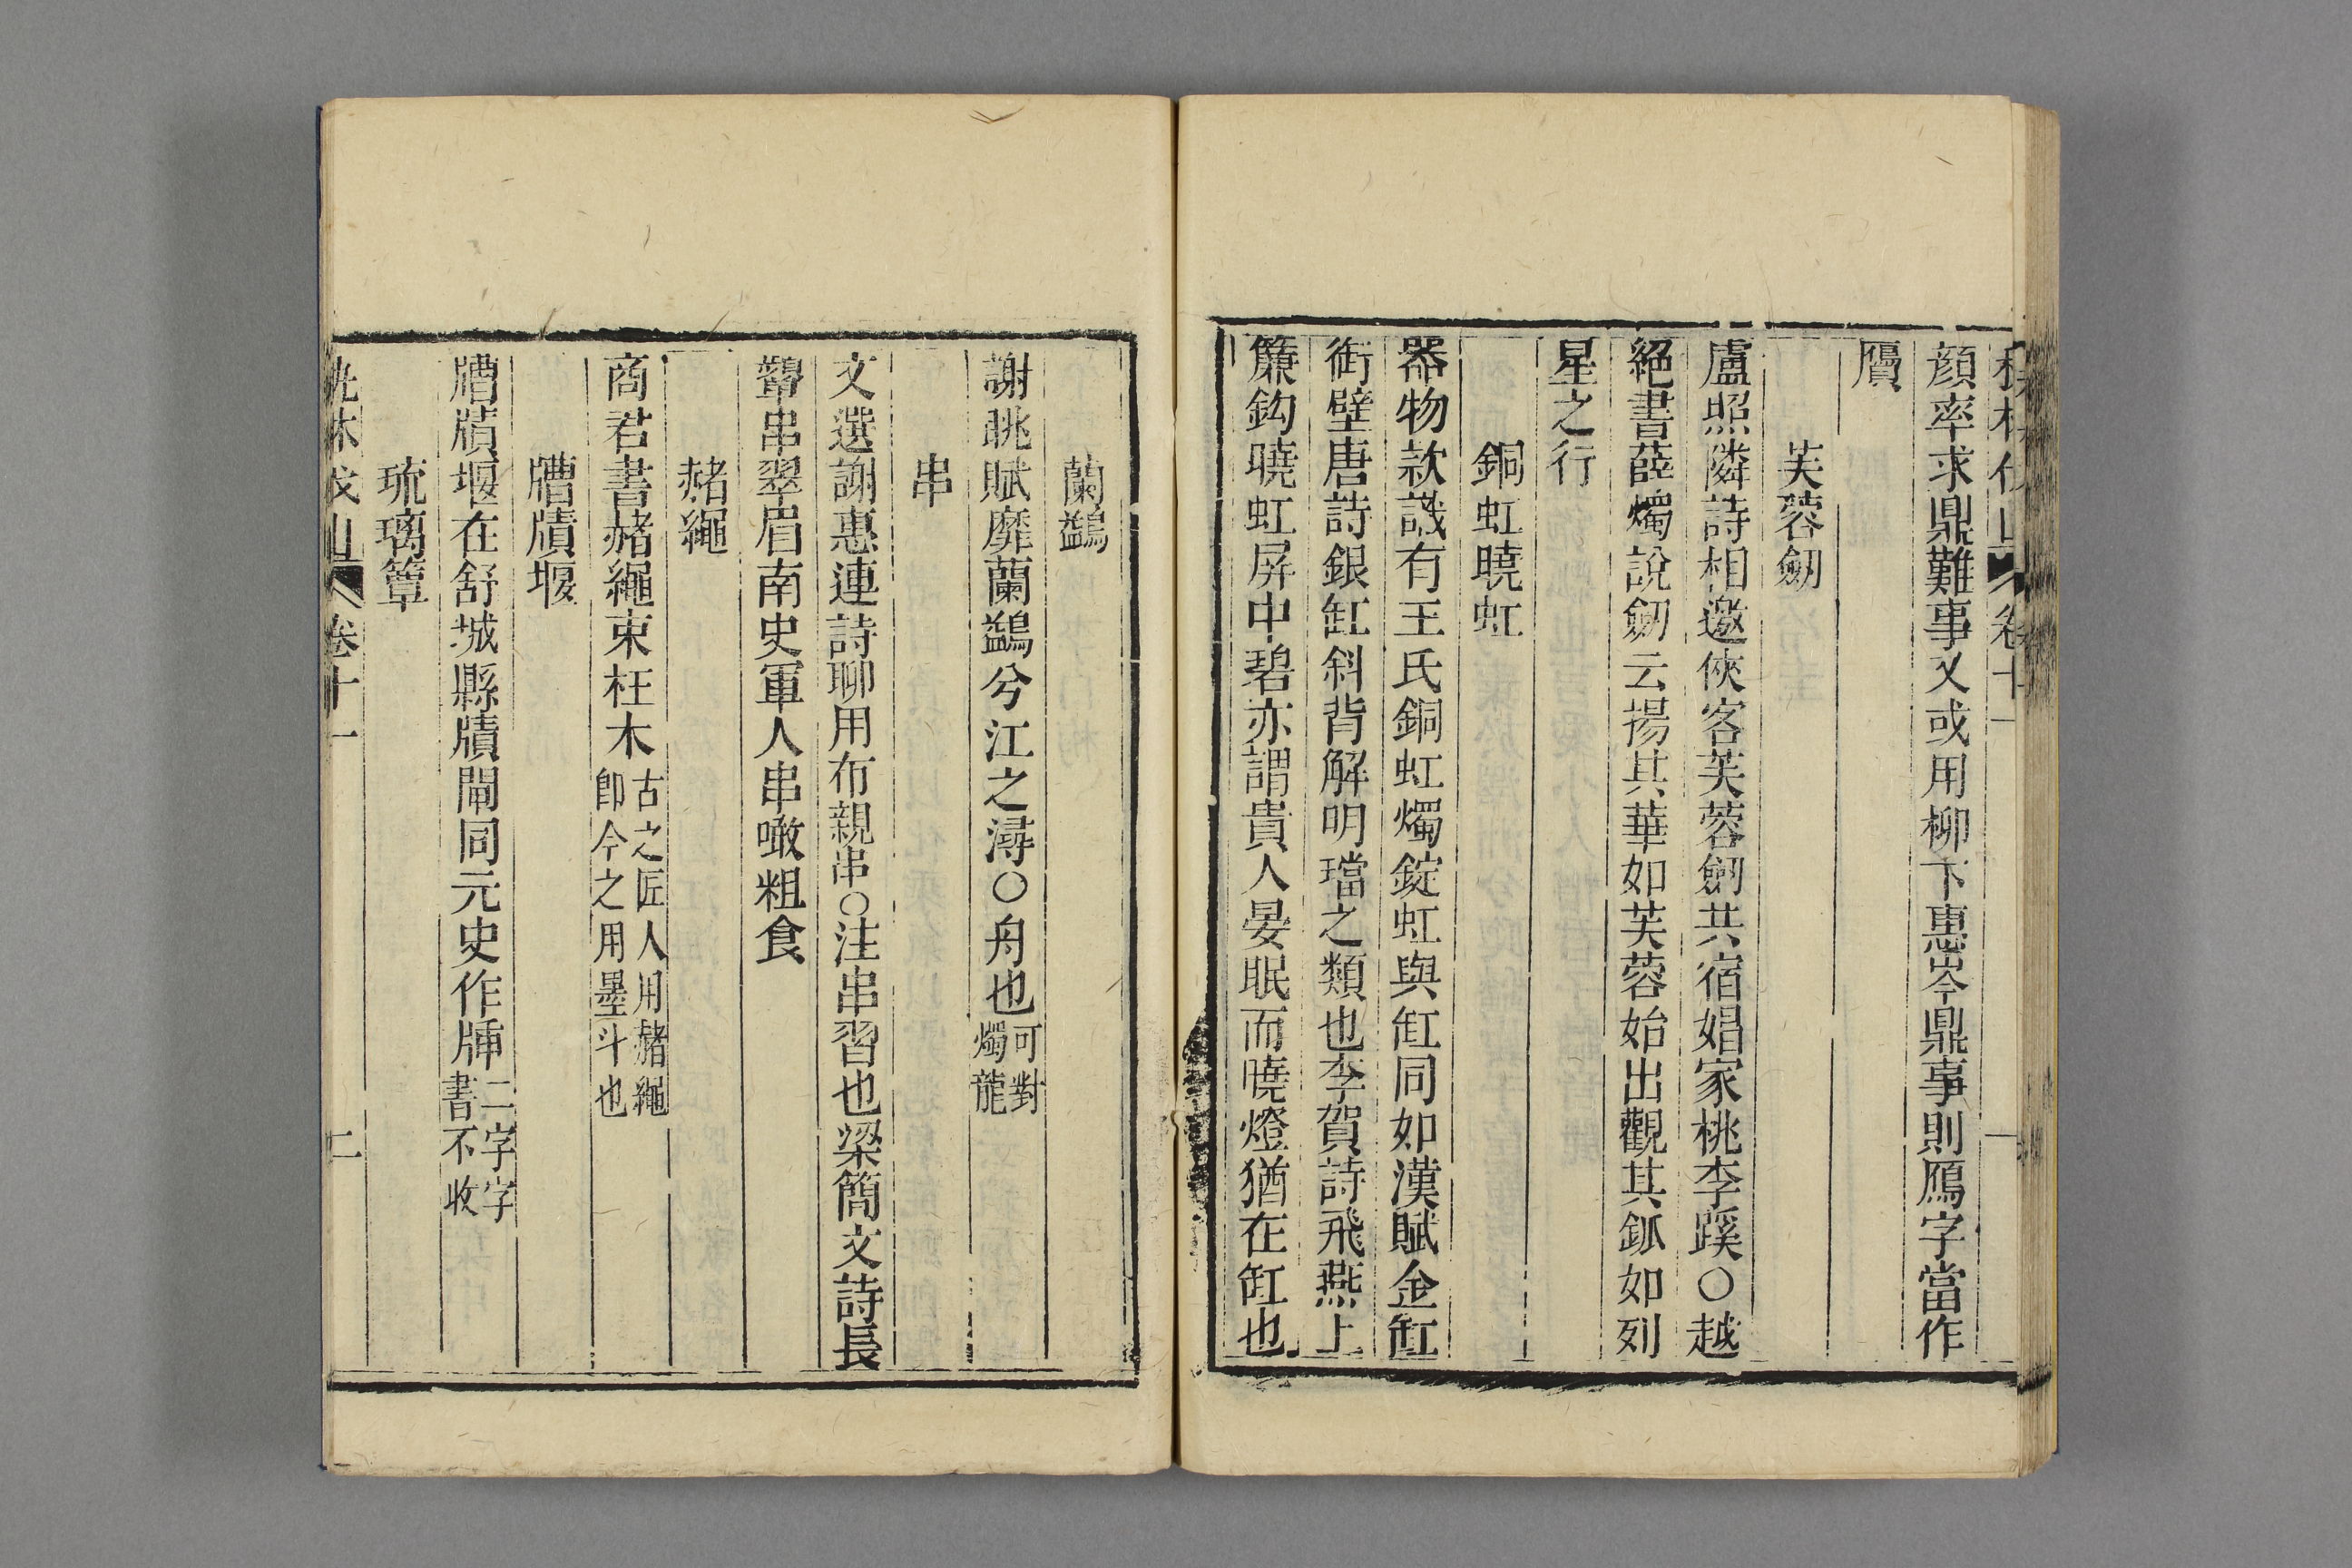 卷十一
顔率求鼎難事又或用柳下惠岑鼎事則鴈字當作
贗
芙蓉劒
盧照隣詩相邀俠客芙蓉劒共宿娼家桃李蹊○越
絕書薛燭說劒云揚其華如芙蓉始出觀其釽如列
星之行
銅虹曉虹
器物款識有王氏銅虹燭錠虹與缸同如漢賦金缸
銜壁唐詩銀缸斜背解明璫之類也李賀詩飛燕上
簾鈎曉虹屏中碧亦謂貴人晏眠而曉燈猶在缸也
蘭鷁
謝眺賦靡蘭鷁兮江之潯○舟也可對燭龍
串
文選謝惠連詩聊用布親串○注串習也梁簡文詩長
顰串翠眉南史軍人串噉粗食
赭繩
商君書赭繩束枉木古之匠人用赭繩卽今之用墨斗也
牐堰
堰在舒城縣閘同元史作二字字書不收
琉璃簟
卷十一
二